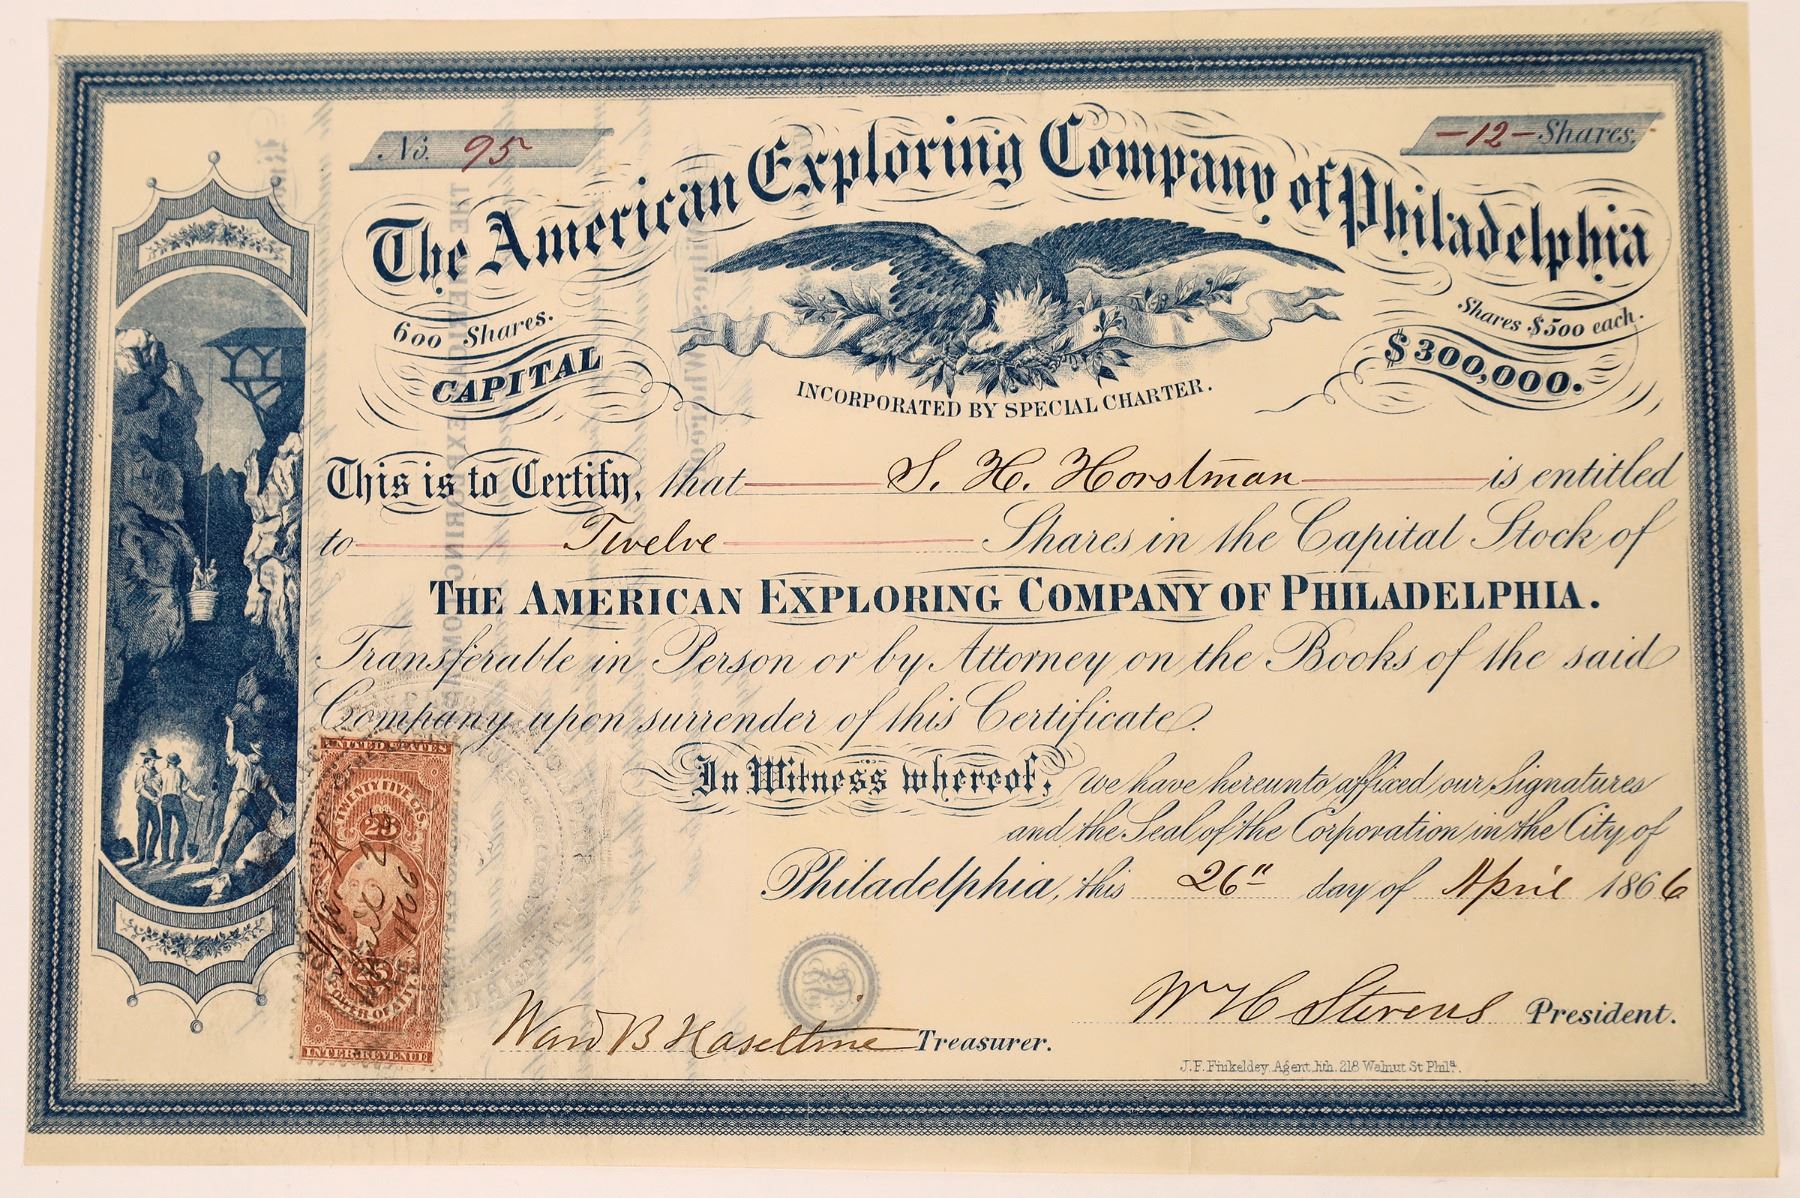 No. 95
—12— Shares.
The American Exploring Company of Philadelphia
600 Shares.
Shares $500 each.
CAPITAL
$300,000.
INCORPORATED BY SPECIAL CHARTER.
This is to Certify, that S. H. Horstman is entitled
to Twelve Shares in the Capital Stock of
THE AMERICAN EXPLORING COMPANY OF PHILADELPHIA.
Transferable in Person or by Attorney on the Books of the said
Company upon surrender of this Certificate.
In Witness whereof, we have hereunto affixed our Signatures
and the Seal of the Corporation in the City of
Philadelphia, this 26" day of April 1866
UNITED STATES
TWENTY FIVE CTS.
25
April
1866
25
POWER OF ATT'Y
INTER. REVENUE
Ward B Haseltine Treasurer.
W H Stevens President.
J. F. Finkeldey, Agent, lith. 218 Walnut St Phila.